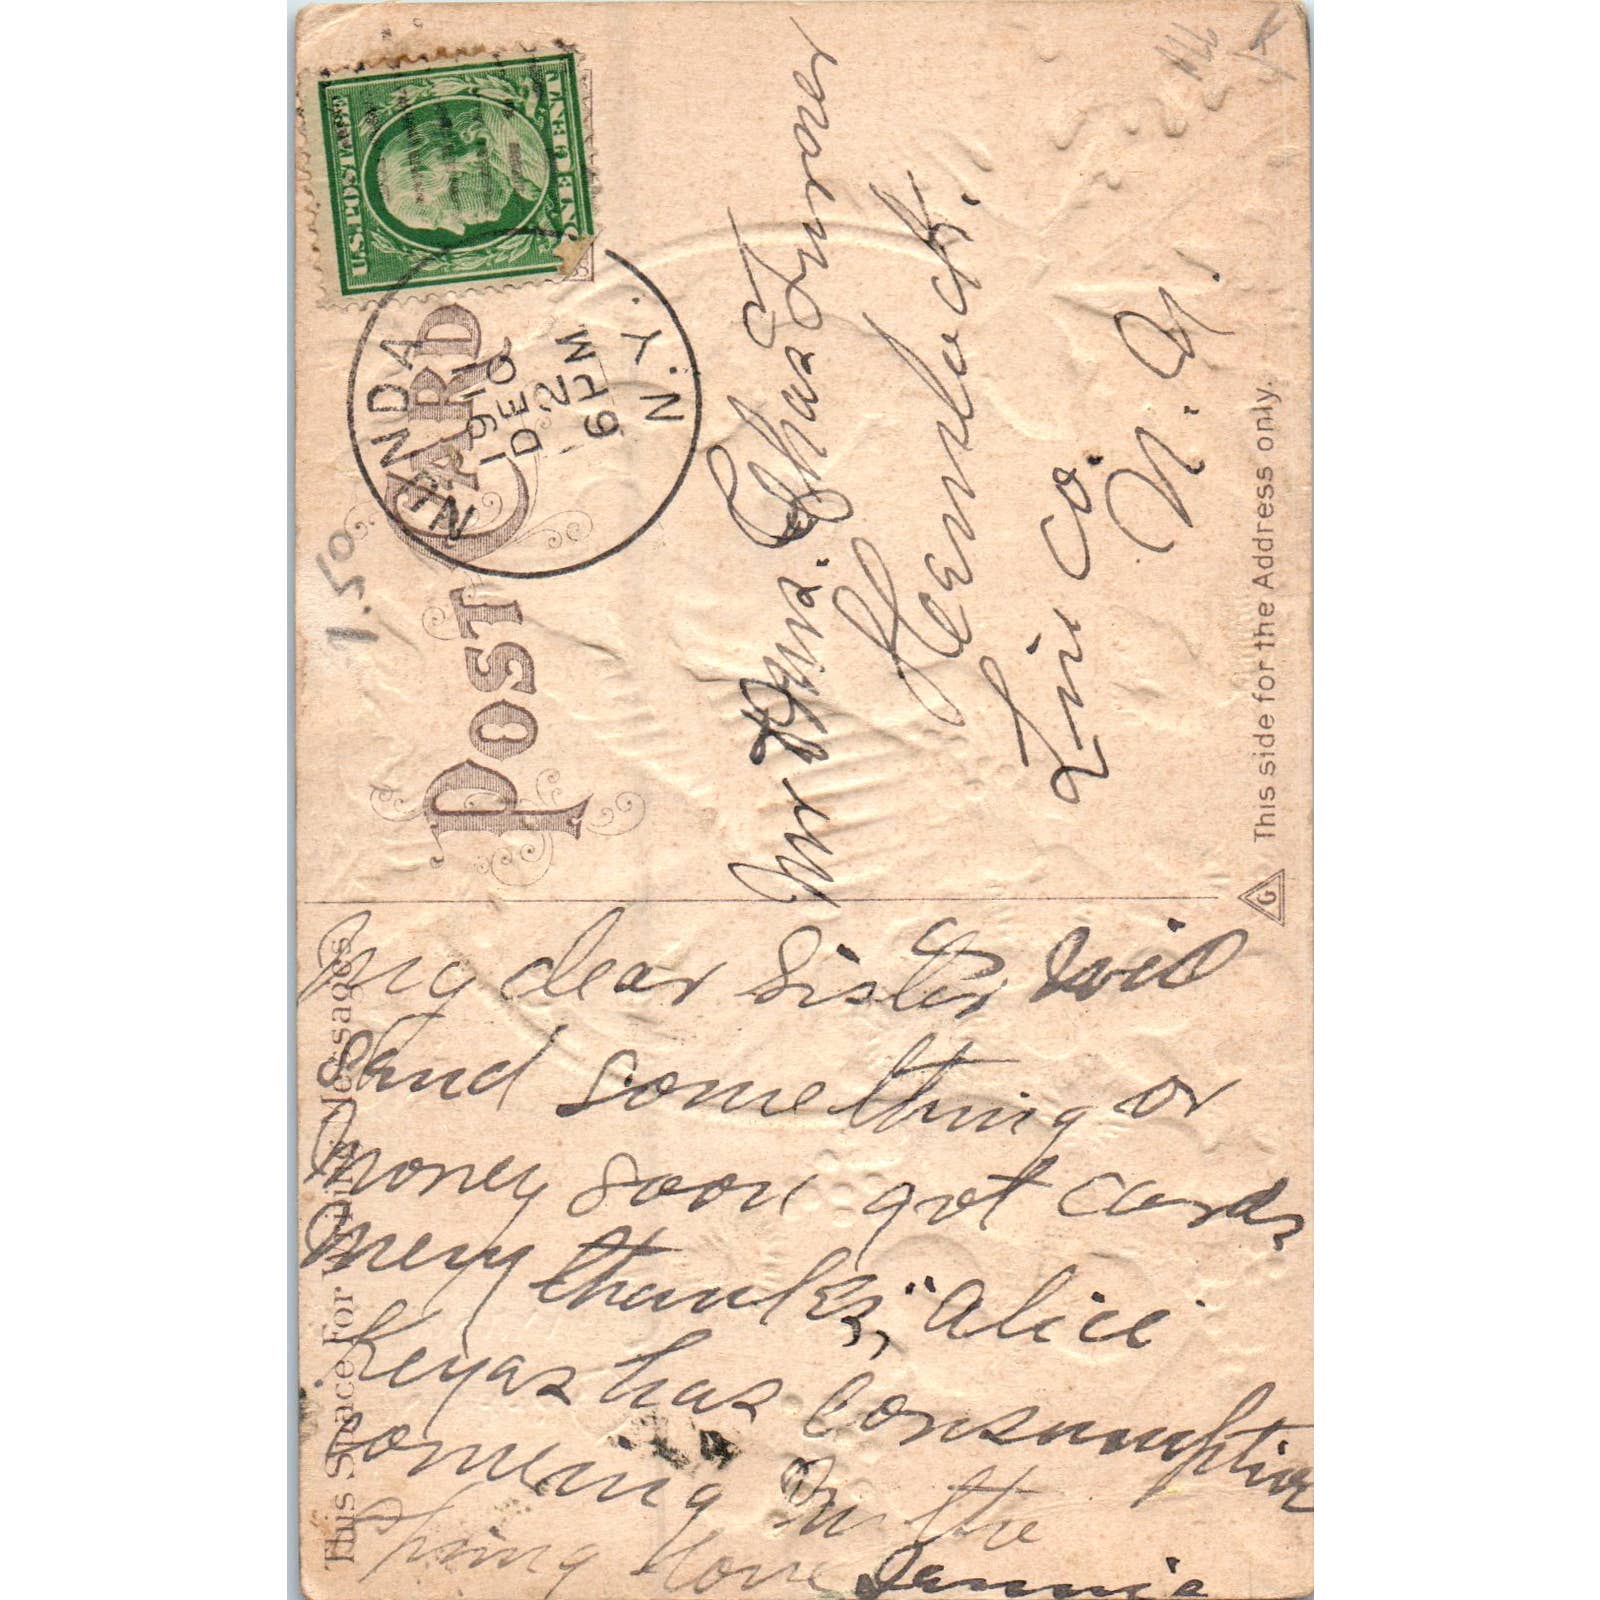 POST CARD
U.S. POSTAGE
ONE CENT
NUNDA
1910
DEC
2
6 PM
N.Y.
1.50
Mrs. Chas Turner
Hemlock.
Liv Co.
N. Y.
This side for the Address only.
G
This Space For Writing Messages
My dear Sister Will
Send something or
money soon got cards
meny thanks, "Alice
Keyas has Consumption
coming in the
Spring love Jennie